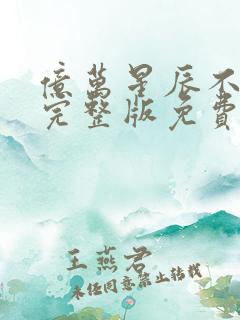 億萬星辰不
完整版免費
王燕君
未経同意禁止轉載